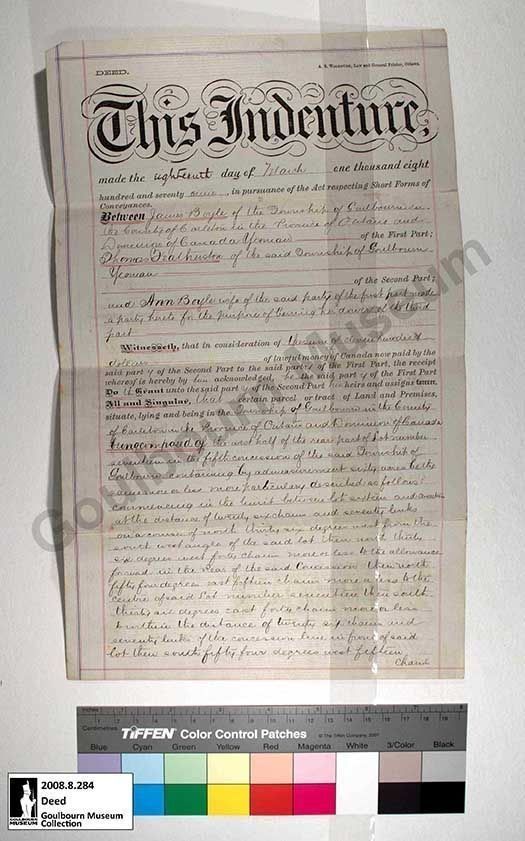 DEED.
A. S. Woodburn, Law and General Printer, Ottawa.
This Indenture,
made the eighteenth day of March one thousand eight
hundred and seventy nine, in pursuance of the Act respecting Short Forms of
Conveyances.
Between James Boyle of the Township of Goulbourn in
the County of Carleton in the Province of Ontario and
Dominion of Canada Yeoman of the First Part;
Thomas Featherston of the said Township of Goulbourn
Yeoman
of the Second Part;
and Ann Boyle wife of the said party of the first part made
a party hereto for the purpose of barring her dower of the third
part
Witnesseth, that in consideration of the sum of hundred
dollars of lawful money of Canada now paid by the
said party of the Second Part to the said party of the First Part, the receipt
whereof is hereby by him acknowledged, he the said party of the First Part
Do th Grant unto the said party of the Second Part his heirs and assigns
All and Singular, that certain parcel or tract of Land and Premises,
situate, lying and being in the Township of Goulbourn in the County
of Carleton in the Province of Ontario and Dominion of Canada
being composed of the west half of the rear part of Lot number
seventeen in the fifth concession of the said Township of
Goulbourn containing by admeasurement sixty acres be the
same more or less more particularly described as follows:
commencing in the limit between lots sixteen and seventeen
at the distance of twenty six chains and seventy links
on a course of north thirty six degrees west from the
south west angle of the said lot then north thirty
six degrees west forty chains more or less to the allowance
for road in the rear of the said Concession then north
fifty four degrees east fifteen chains more or less to the
centre of said Lot number seventeen then south
thirty six degrees east forty chains more or less
to within the distance of twenty six chains and
seventy links of the concession line in front of said
lot then south fifty four degrees west fifteen
chains
Goulbourn Museum
Inches
Centimetres
1 2 3 4 5 6 7 8 9 10 11 12 13 14 15 16 17 18 19
TIFFEN Color Control Patches
© The Tiffen Company, 2007
Blue Cyan Green Yellow Red Magenta White 3/Color Black
2008.8.284
Deed
Goulbourn Museum
Collection
GOULBOURN
MUSEUM